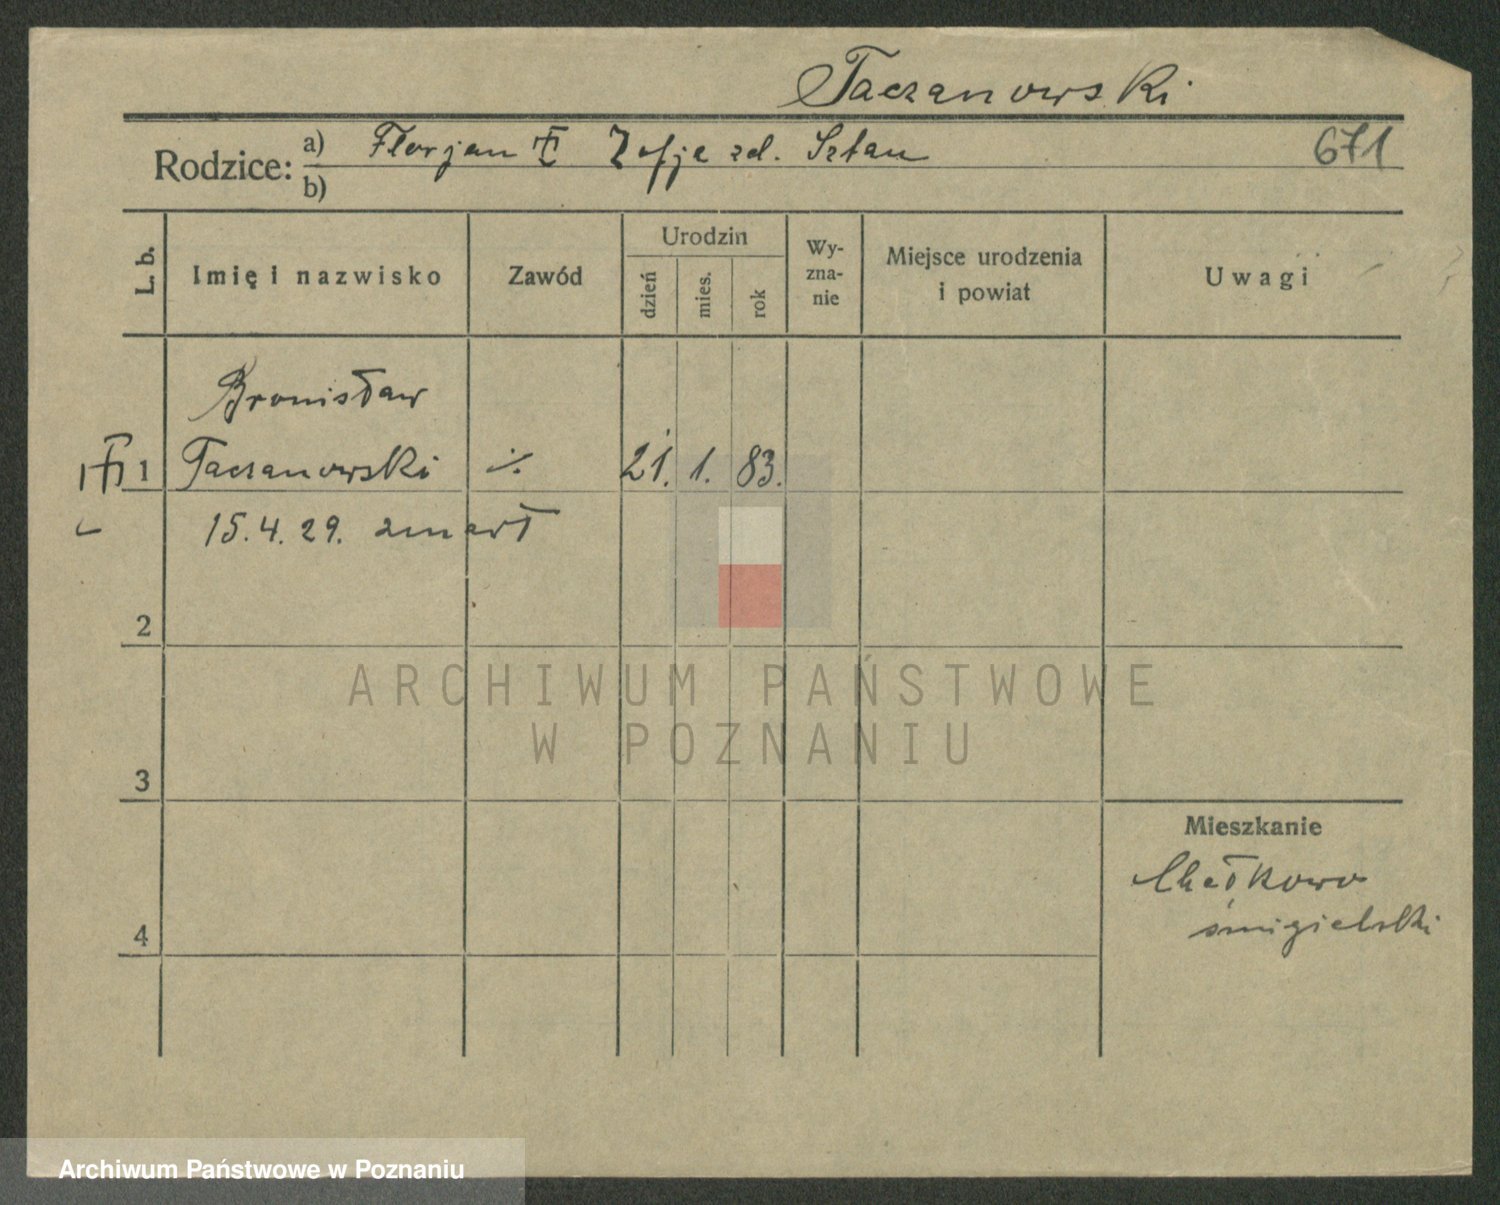 Taczanowski
Rodzice: a) Florjan Zofja zd. Sztan 671
b)
L. b. Imię i nazwisko Zawód Urodzin dzień mies. rok Wyzna-nie Miejsce urodzenia i powiat Uwagi
Bronisław
1 Taczanowski ·/. 21. 1. 83.
15.4.29. zmarł
2
ARCHIWUM PAŃSTWOWE
W POZNANIU
3
Mieszkanie
Chełkowo
śmigielski
4
Archiwum Państwowe w Poznaniu